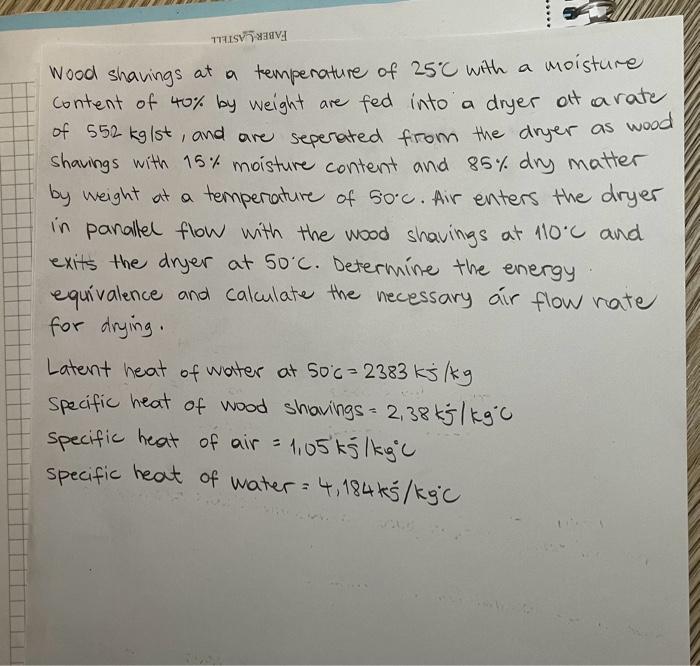 FABER-CASTELL
Wood shavings at a temperature of 25°C with a moisture
content of 40% by weight are fed into a dryer at a rate
of 552 kg/st, and are seperated from the dryer as wood
shavings with 15% moisture content and 85% dry matter
by weight at a temperature of 50°C. Air enters the dryer
in parallel flow with the wood shavings at 110°C and
exits the dryer at 50°C. Determine the energy
equivalence and calculate the necessary air flow rate
for drying.
Latent heat of water at 50°C = 2383 kj/kg
Specific heat of wood shavings = 2,38 kj/kg°C
Specific heat of air = 1,05 kj/kg°C
Specific heat of water = 4,184 kj/kg°C